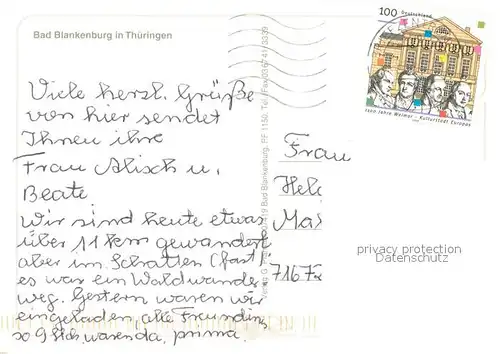 Bad Blankenburg in Thüringen
Viele herzl. Grüße
von hier sendet
Ihnen ihre
Frau Alisch u.
Beate.
Wir sind heute etwas
über 11 km gewandert
aber im Schatten (fast)
es war ein Waldwander
weg. Gestern waren wir
eingeladen alle
so 9 Stck waren da, prima.
Bad Blankenburg, PF 1150, Tel./Fax 036741/3339
100 Deutschland
1100 Jahre Weimar - Kulturstadt Europas
Frau
Hel
Ma
privacy protection
Datenschutz